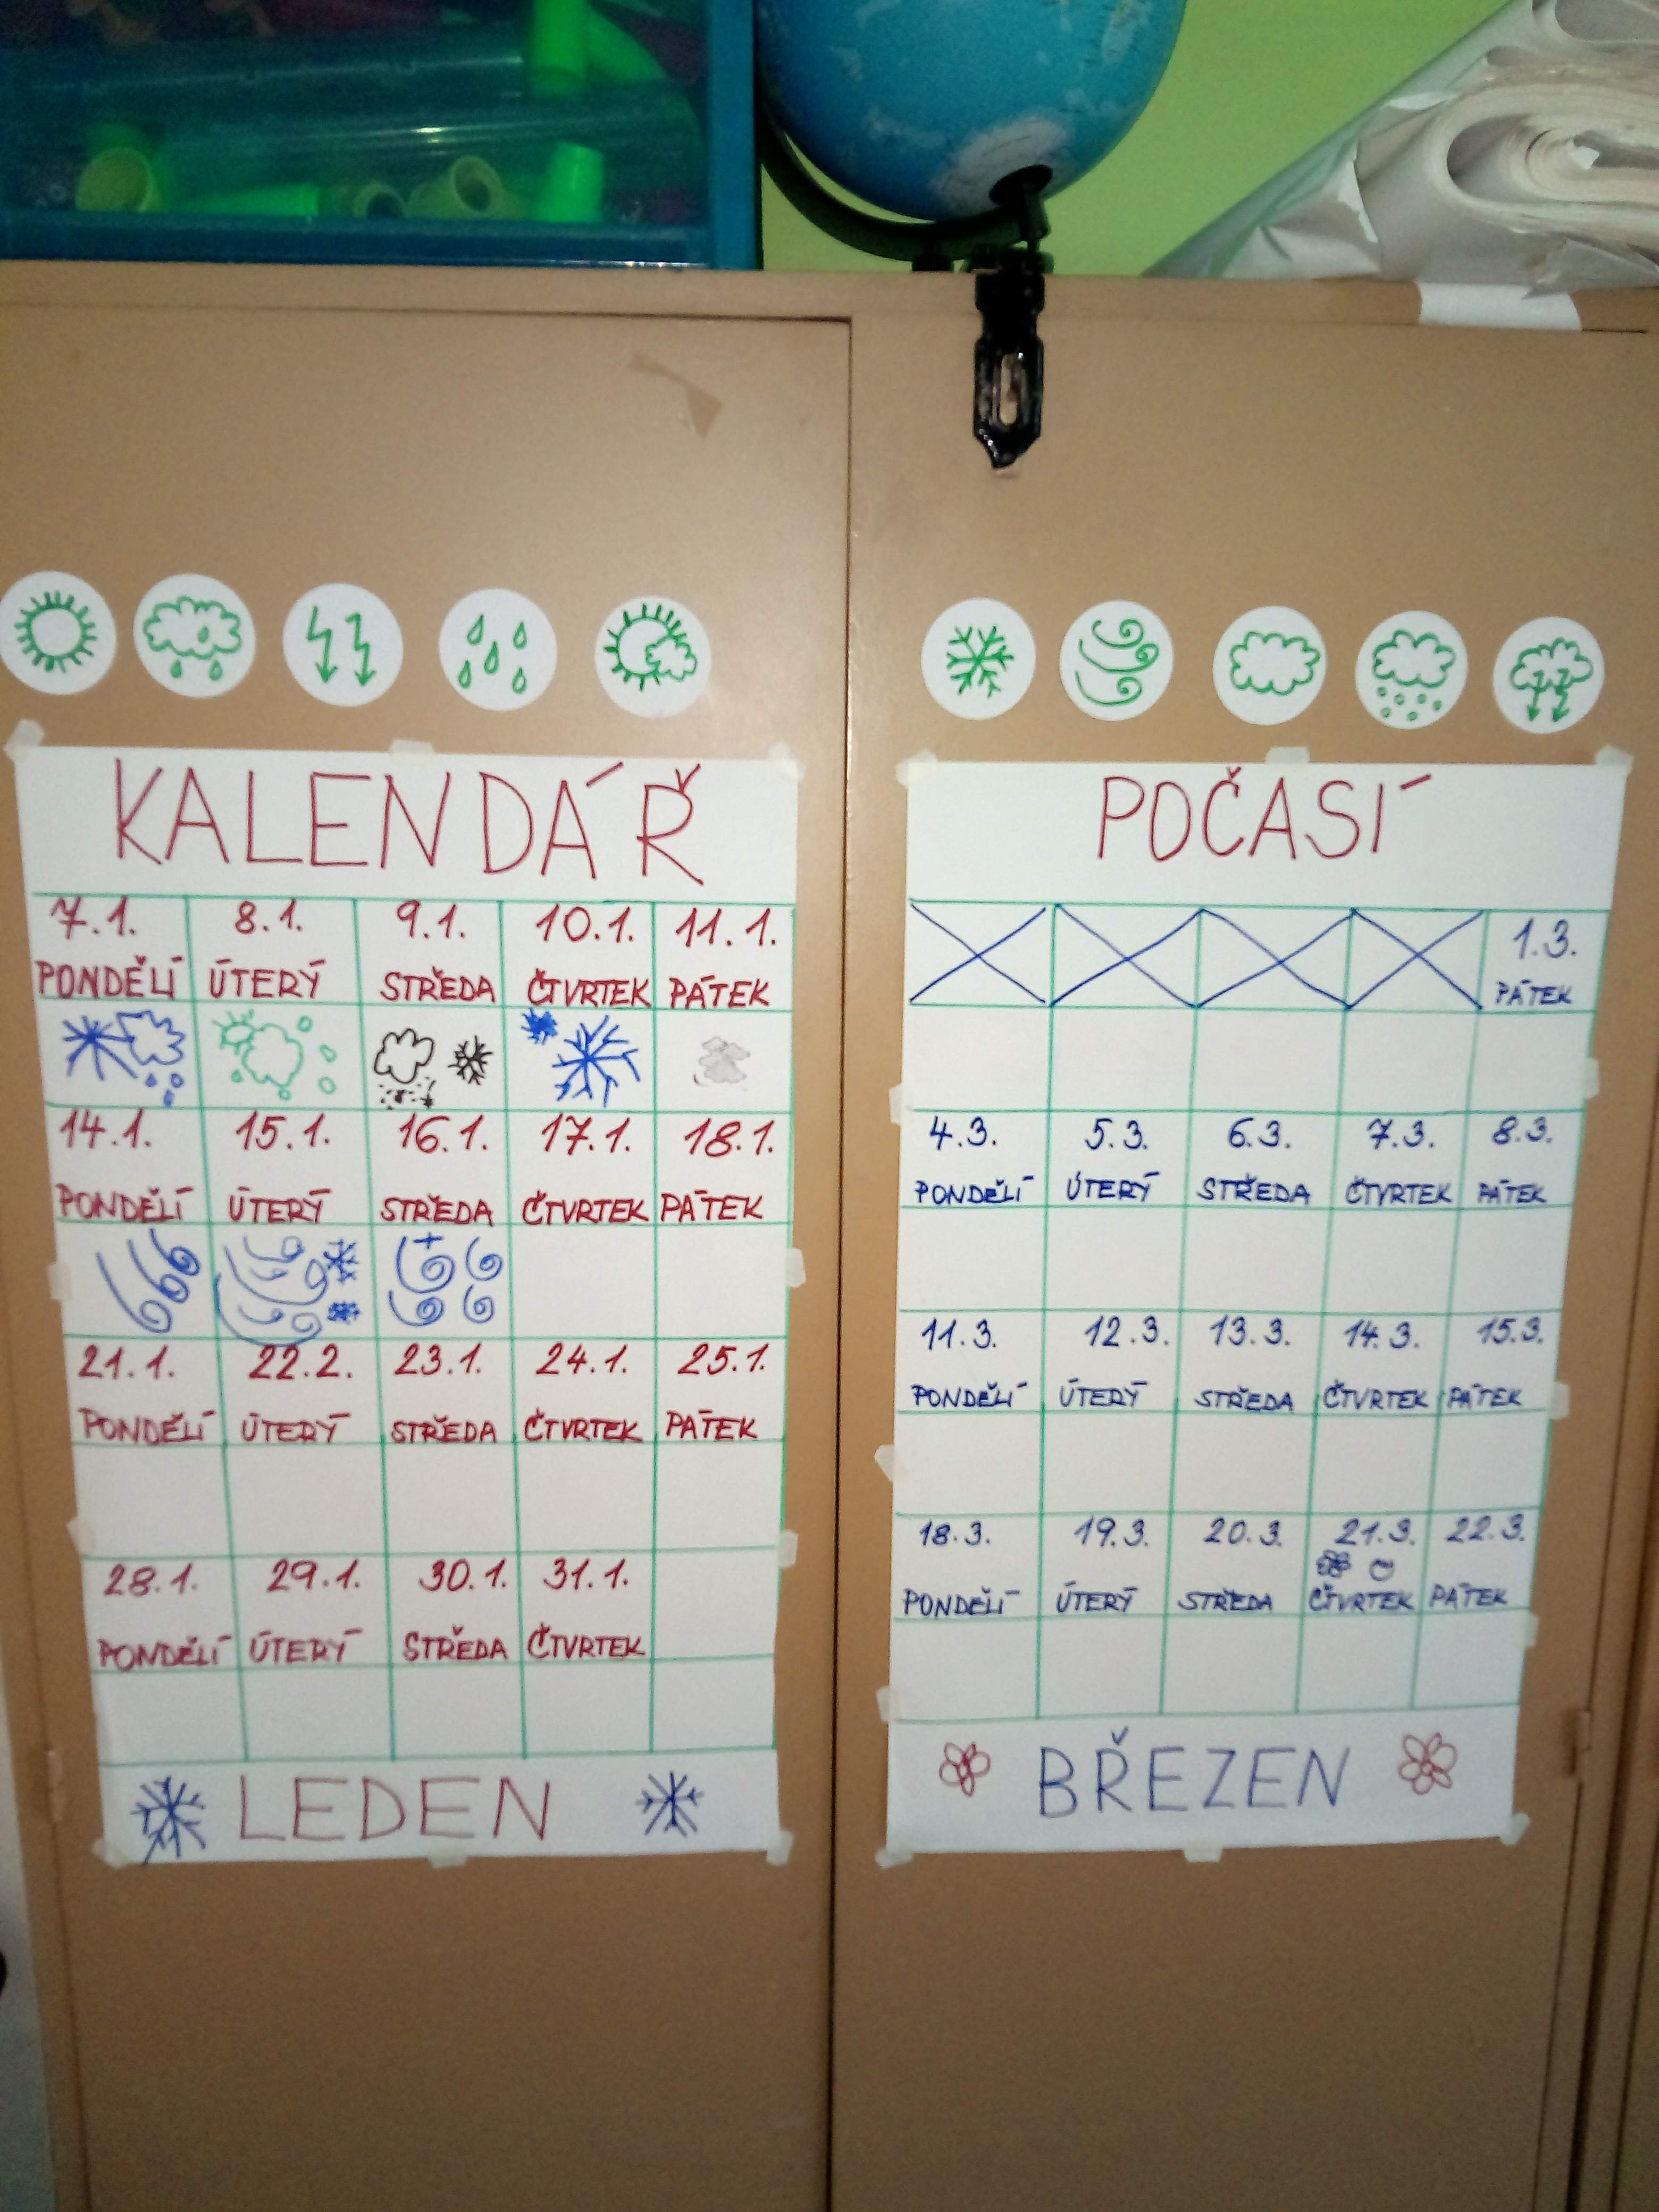 KALENDÁŘ
7.1. 8.1. 9.1. 10.1. 11.1.
PONDĚLÍ ÚTERÝ STŘEDA ČTVRTEK PÁTEK
14.1. 15.1. 16.1. 17.1. 18.1.
PONDĚLÍ ÚTERÝ STŘEDA ČTVRTEK PÁTEK
21.1. 22.2. 23.1. 24.1. 25.1.
PONDĚLÍ ÚTERÝ STŘEDA ČTVRTEK PÁTEK
28.1. 29.1. 30.1. 31.1.
PONDĚLÍ ÚTERÝ STŘEDA ČTVRTEK
LEDEN
POČASÍ
1.3.
PÁTEK
4.3. 5.3. 6.3. 7.3. 8.3.
PONDĚLÍ ÚTERÝ STŘEDA ČTVRTEK PÁTEK
11.3. 12.3. 13.3. 14.3. 15.3.
PONDĚLÍ ÚTERÝ STŘEDA ČTVRTEK PÁTEK
18.3. 19.3. 20.3. 21.3. 22.3.
PONDĚLÍ ÚTERÝ STŘEDA ČTVRTEK PÁTEK
BŘEZEN